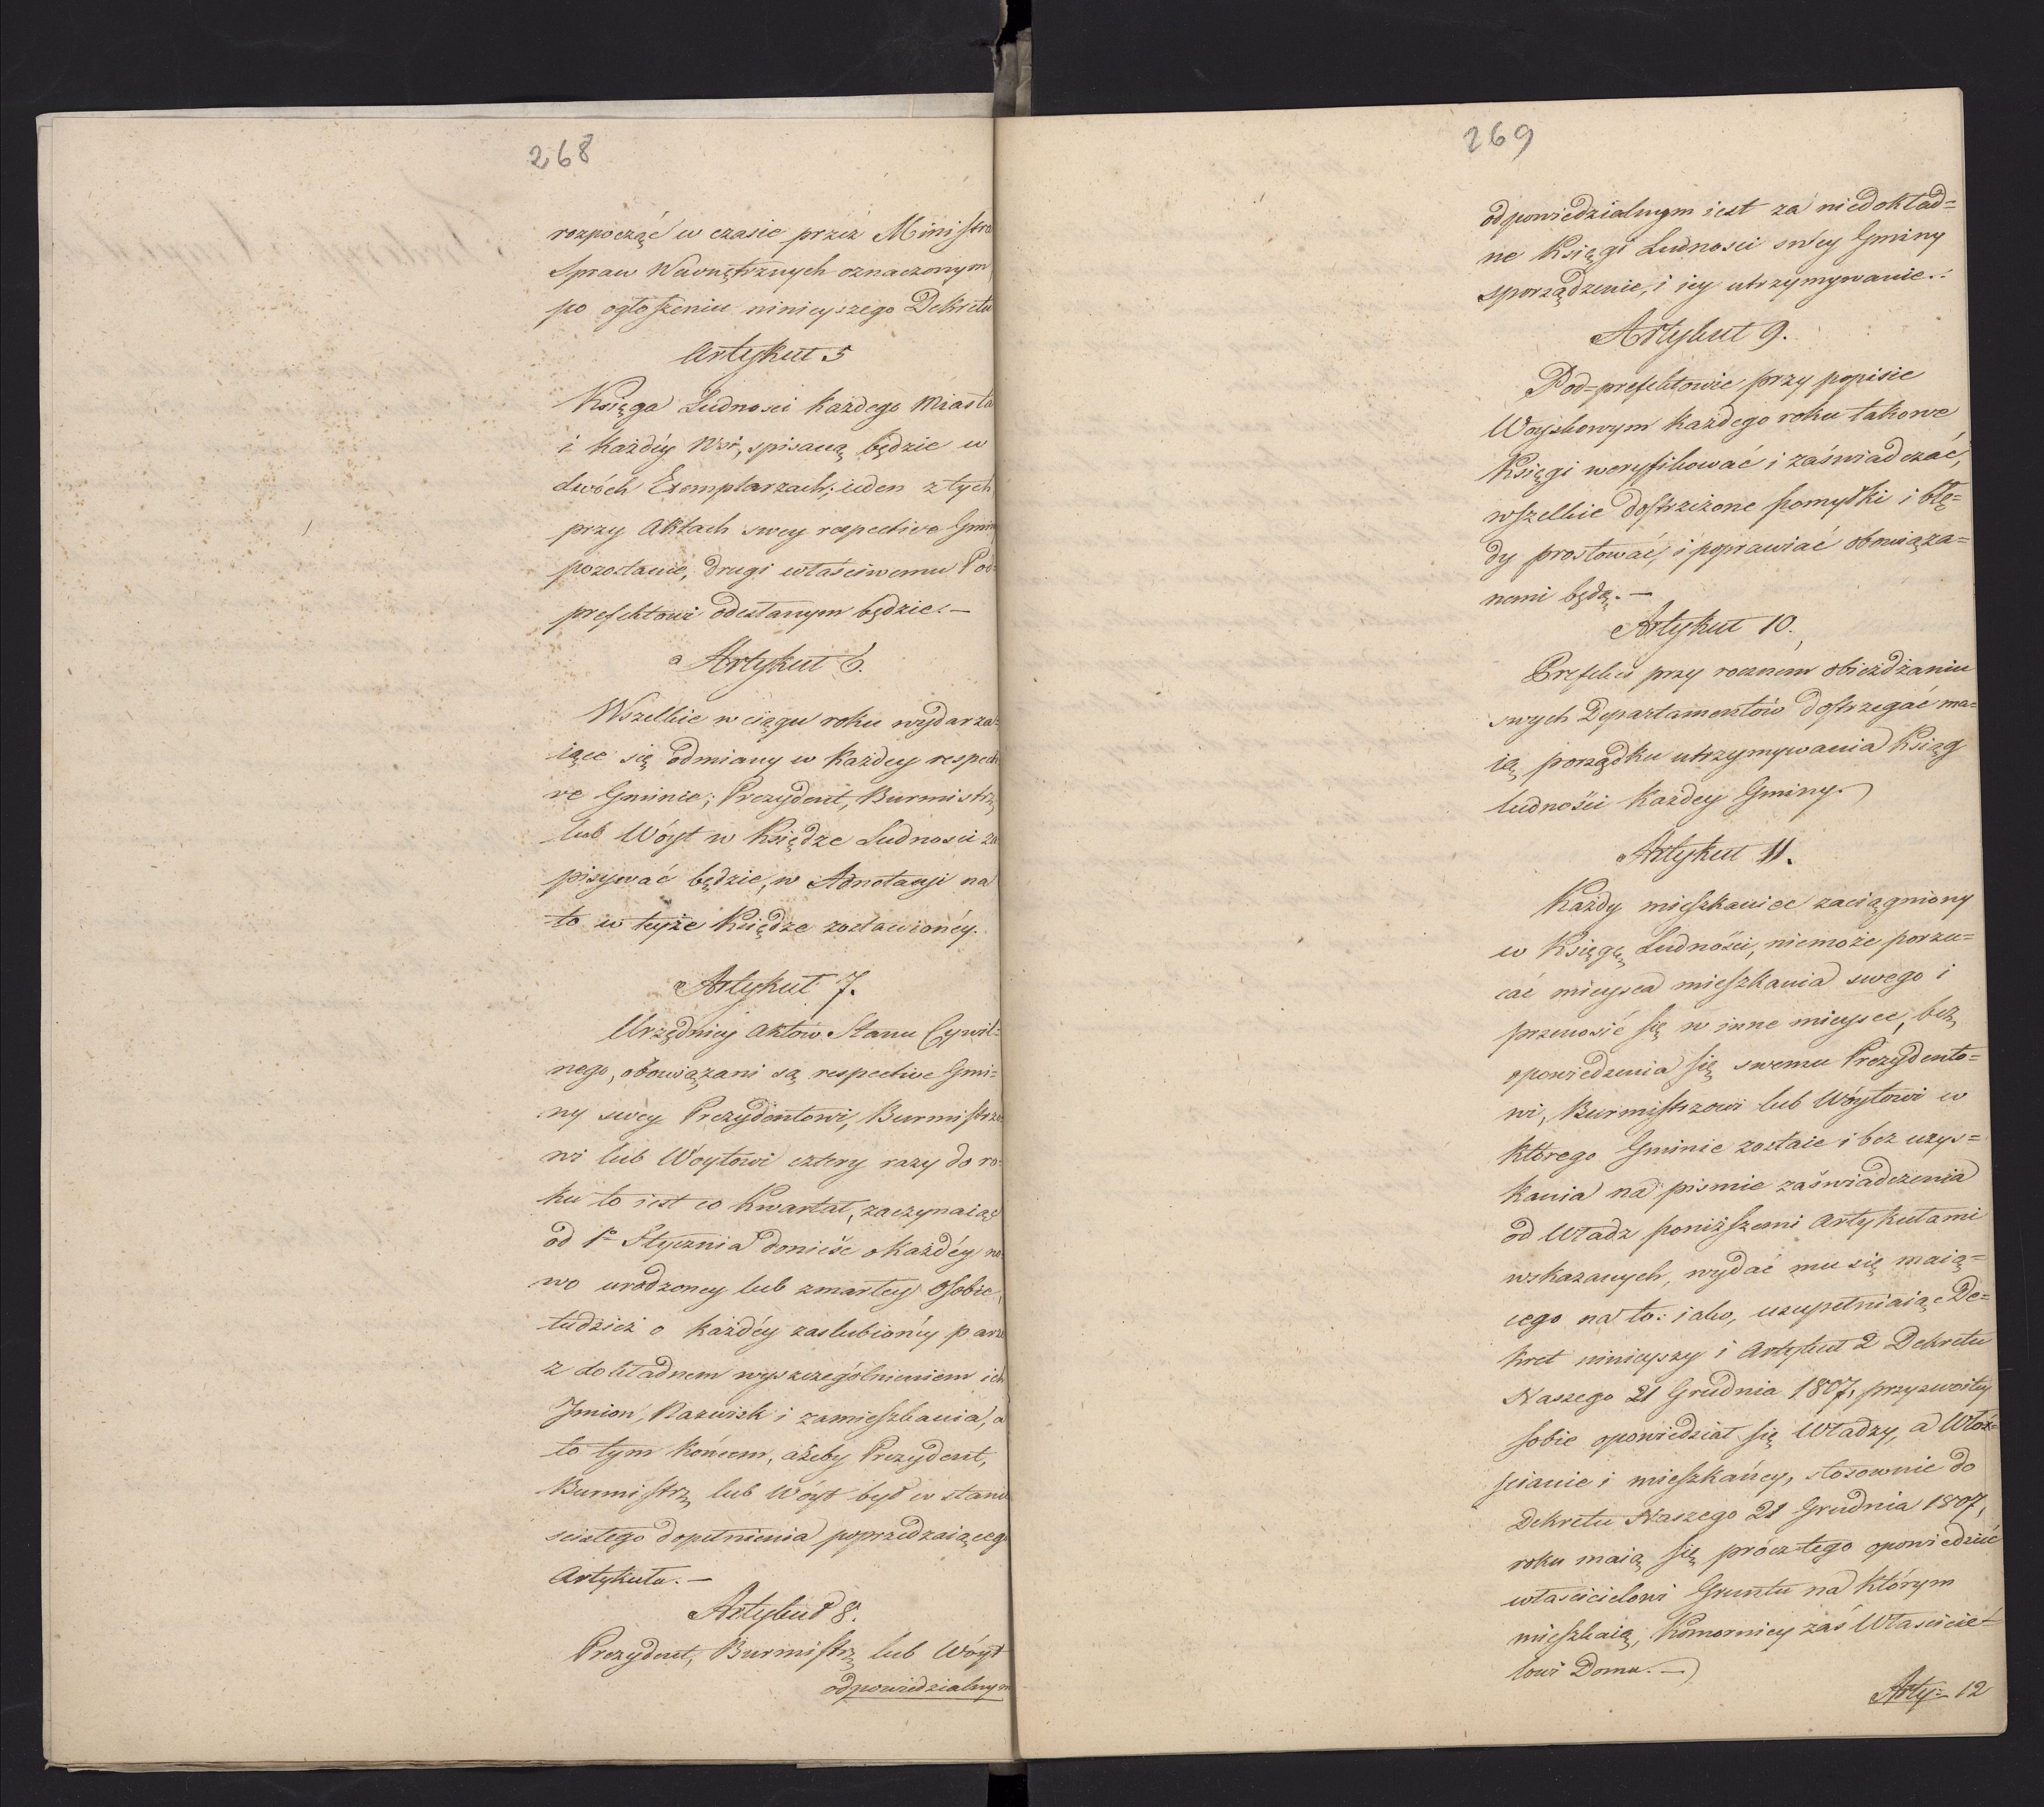 268
rozpocząć w czasie przez Ministra
Spraw Wewnętrznych oznaczonym
po ogłoszeniu ninieyszego Dekretu
Artykuł 5
Księga Ludności każdego Miasta
i każdéy Wsi, spisaną będzie w
dwóch Exemplarzach; ieden z tych
przy Aktach swey respective Gminy
pozostanie, drugi właściwemu Pod-
prefektowi odesłanym będzie.–
Artykuł 6.
Wszelkie w ciągu roku wydarza-
iące się odmiany w każdey respecti
ve Gminie; Prezydent, Burmistrz,
lub Wóyt w Księdze Ludności za
pisywać będzie, w Adnotacyi na
to w teyże Księdze zostawionéy.
Artykuł 7.
Urzędnicy Aktów Stanu Cywil-
nego, obowiązani są respective Gmi-
ny swey Prezydentowi, Burmistrzo
wi lub Wóytowi cztery razy do ro-
ku to iest co Kwartał, zaczynaiąc
od 1º Stycznia donieść o każdéy no
wo urodzoney lub zmarłey Osobie,
tudzież o każdéy zaslubionéy parze
z dokładnem wyszczególnieniem ich
Jmion, Nazwisk i zamieszkania, a
to tym końcem, ażeby Prezydent,
Burmistrz, lub Wóyt był w stanie
scisłego dopełnienia poprzedzaiącego
Artykułu.–
Artykuł 8.
Prezydent, Burmistrz, lub Wóyt
odpowiedzialnym
269
odpowiedzialnym iest za niedokład=
ne Księgi Ludności swéy Gminy
sporządzenie, i iey utrzymywanie.
Artykuł 9.
Pod=prefektowie przy popisie
Woyskowym każdego roku takowe
Księgi weryfikować i zaświadczać,
wszelkie dostrzeżone pomyłki i błę=
dy prostować, i poprawiać obowiąza=
nemi będą.–
Artykuł 10.
Prefekci przy rocznem obieżdżaniu
swych Departamentów dostrzegać ma=
ią, porządku utrzymywania Ksiąg
ludności każdey Gminy.
Artykuł 11.
Każdy mieszkaniec zaciągniony
w Księgę Ludności, niemoże porzu=
cać mieysca mieszkania swego i
przenosić się w inne mieysce, bez
opowiedzenia się swemu Prezydento=
wi, Burmistrzowi lub Wóytowi w
którego Gminie zostaie i bez uzys=
kania na pismie zaświadczenia
od Władz poniższemi Artykułami
wskazanych, wydać mu się maią=
cego na to: iako, uzupełniaiąc De=
kret ninieyszy i Artykuł 2 Dekretu
Naszego 21 Grudnia 1807, przyzwoitéy
sobie opowiedział się Władzy, a Włoś=
scianie i mieszkańcy, stosownie do
Dekretu Naszego 21 Grudnia 1807,
roku maią się prócz tego opowiedzieć
właścicielowi Gruntu na którym
mieszkaią, Komornicy zaś Właścicie=
lowi Domu.–
Arty= 12